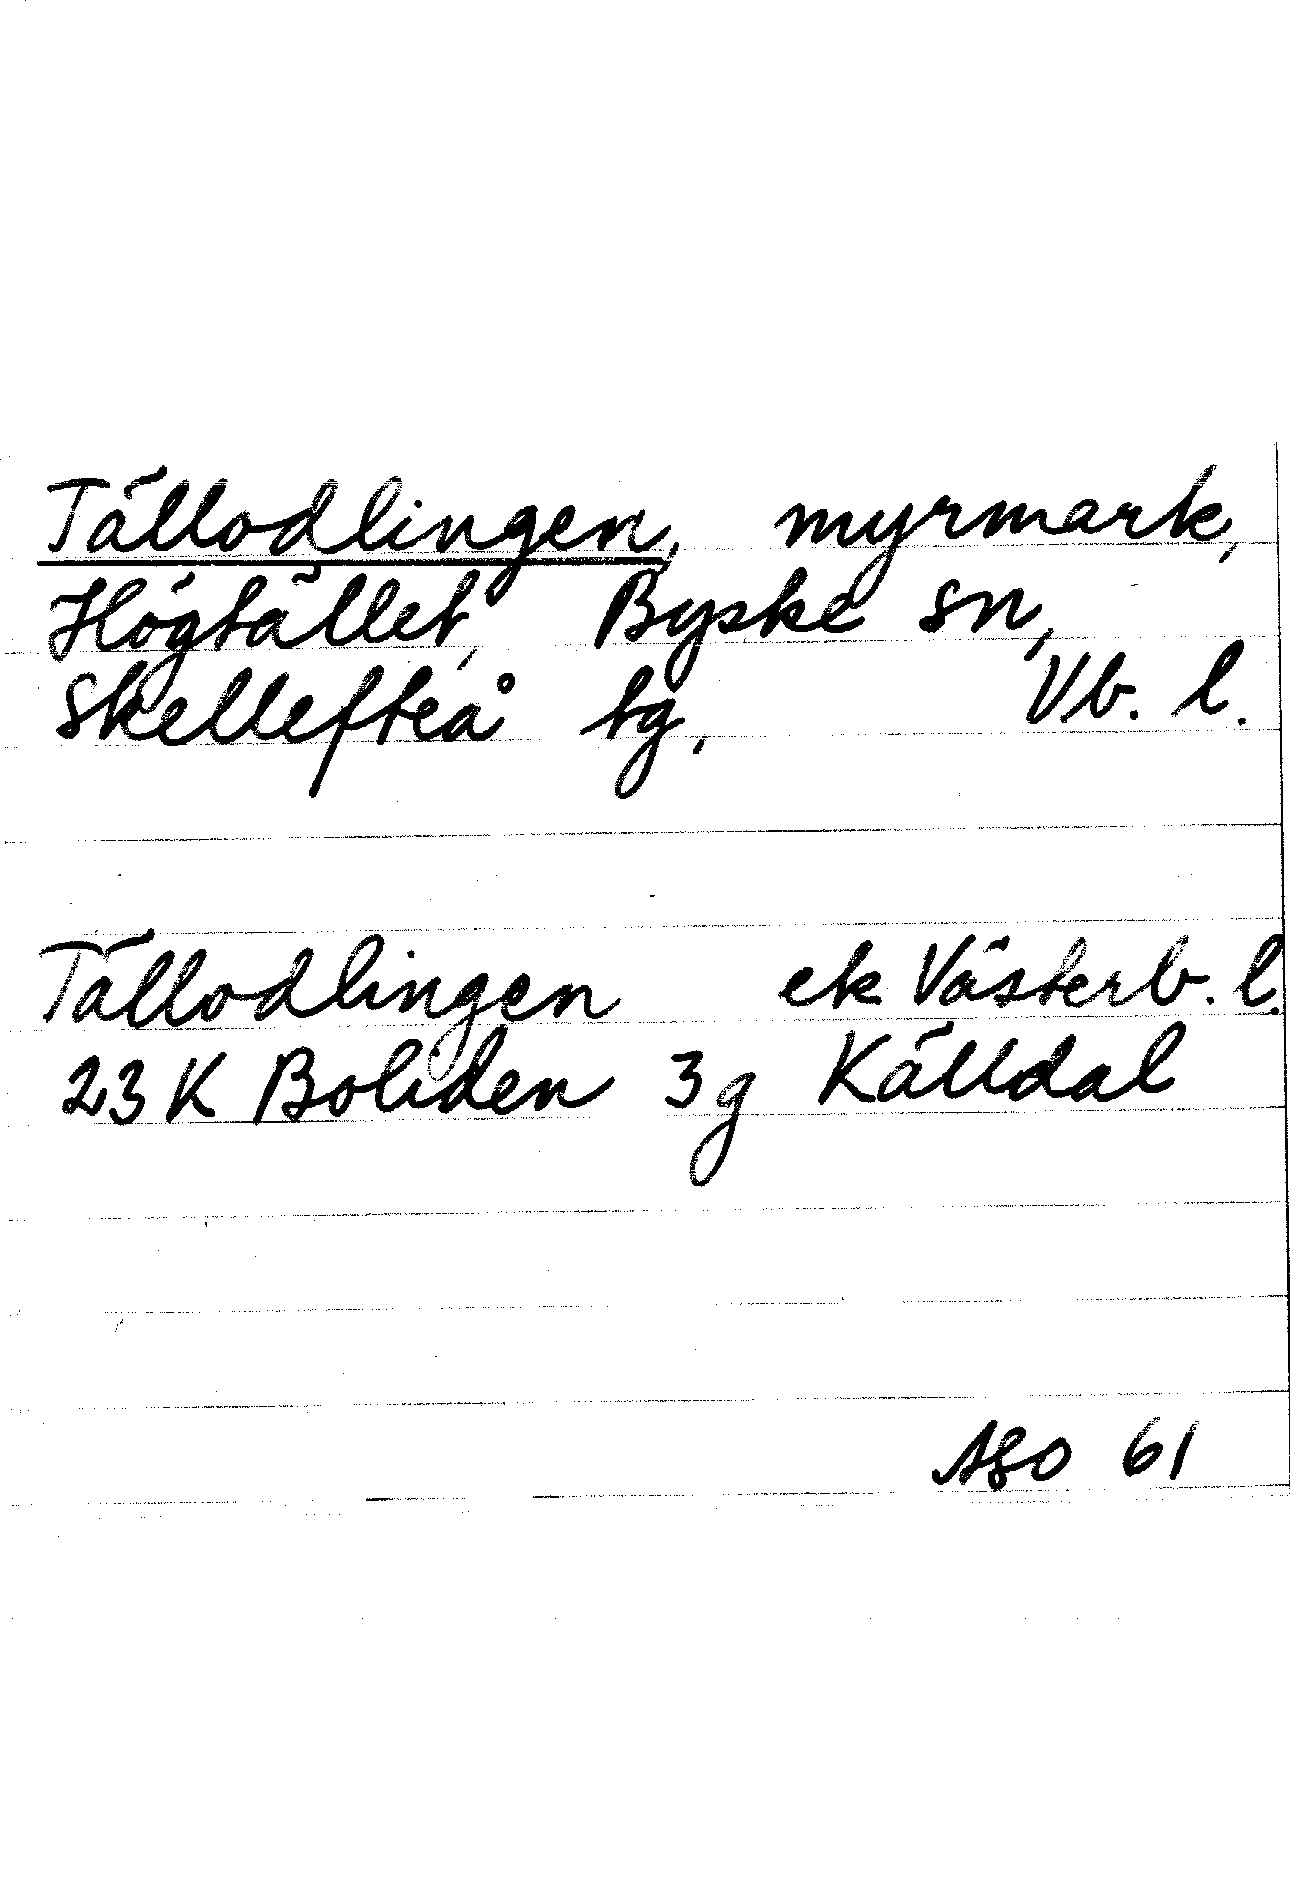 Tällodlingen, myrmark,
Högtället, Byske sn,
Skellefteå tg, Vb. l.
Tällodlingen ek Västerb. l.
23K Boliden 3g Källdal
ASO 61